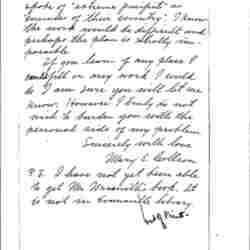 spoke of "extreme purist" as
of their country." I know
the work would be difficult and
perhaps the plan is wholly im-
possible
If you learn of any place I
could fill or any work I could
do I am sure you will let me
know. However I truly do not
wish to burden you with the
personal side of my problem.
Sincerely with love
Mary E Collson
P.S. I have not yet been able
to get Mr. book. It
is not in library.